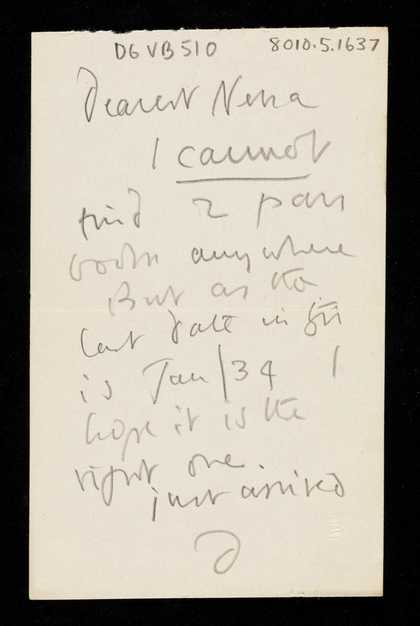 DG VB 510 8010.5.1637
Dearest Nessa
I cannot
find 2 pass
books anywhere
But as the
last date in this
is Jan/34 I
hope it is the
right one.
just arrived
D